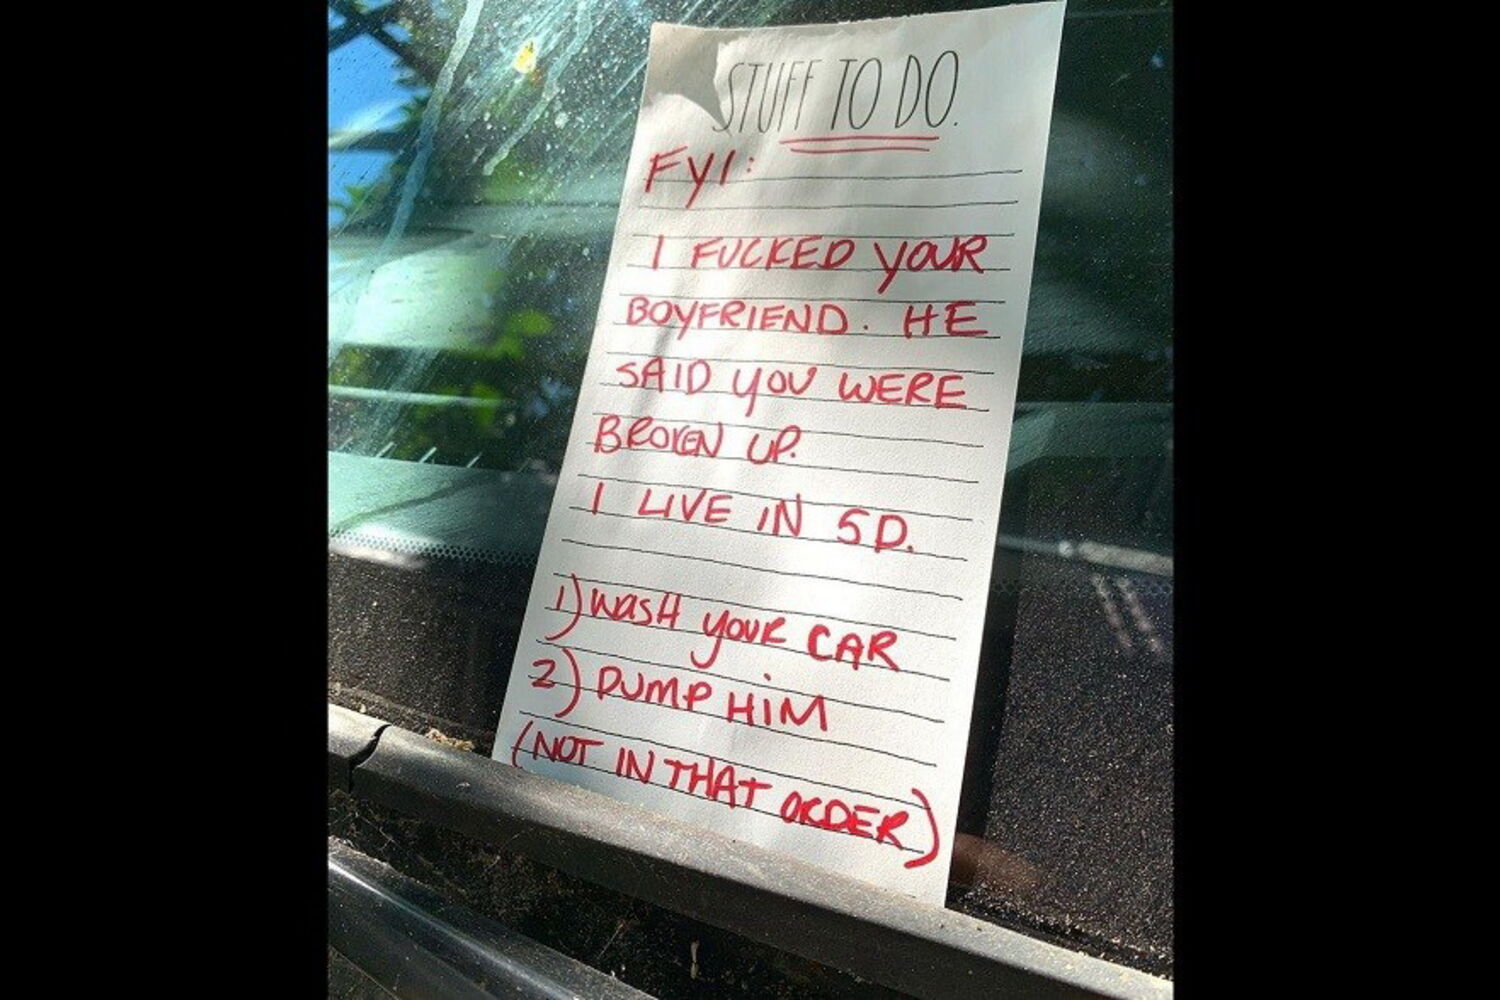 STUFF TO DO.
FYI:
I FUCKED YOUR
BOYFRIEND. HE
SAID YOU WERE
BROKEN UP.
I LIVE IN SD.
1) WASH YOUR CAR
2) DUMP HIM
(NOT IN THAT ORDER)